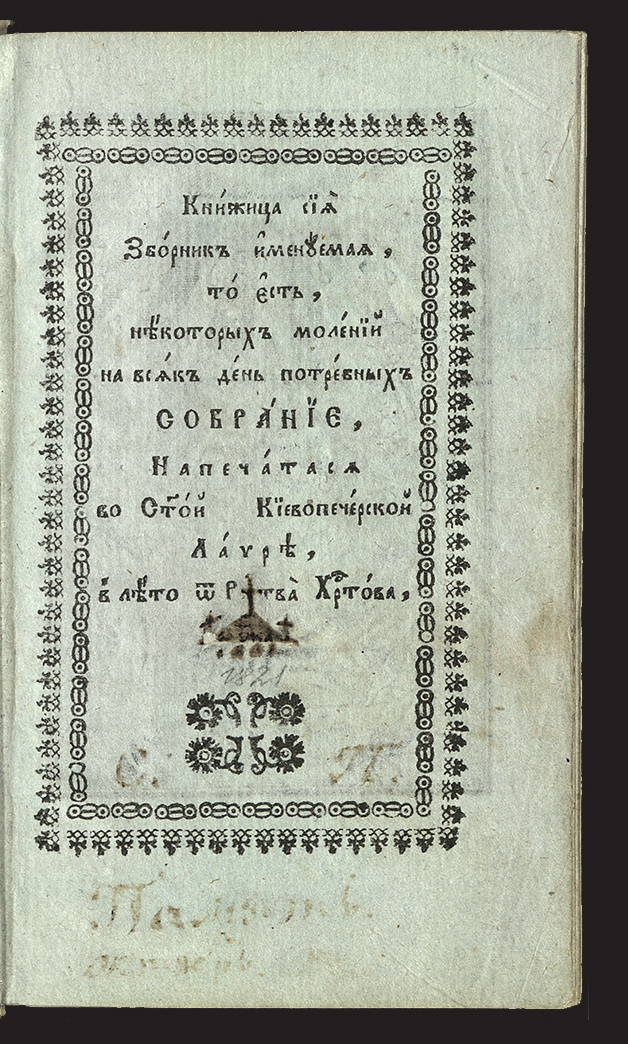 Кни́жица сїѧ̀
Збо́рникъ и҆менꙋ́емаѧ,
то́ є҆сть,
нѣ́которыхъ моле́нїй
на всѧ́къ де́нь потре́бныхъ
СОБРА́НЇЕ,
Напеча́тасѧ
во Ст҃о́й Кїевопече́рской
Ла́ѵрѣ,
в̾ лѣ́то ѿ Хрⷭ҇то́ва,
1821
С. П.